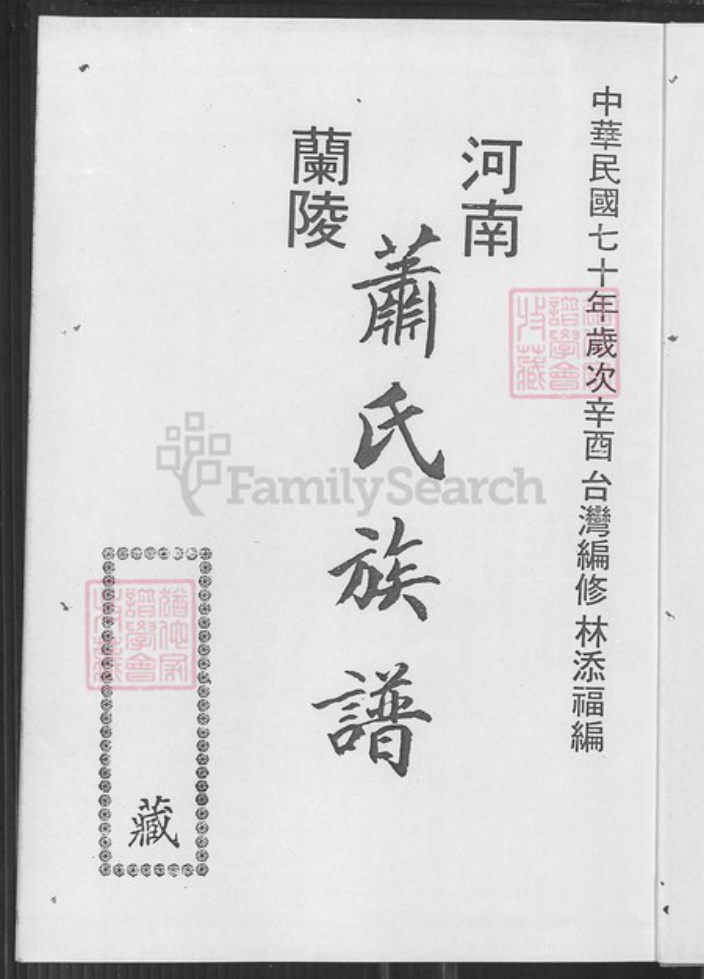 中華民國七十年歲次辛酉台灣編修林添福編
河南
蕭氏族譜
蘭陵
藏
譜學會
收藏
猶他家
譜學會
收藏
FamilySearch